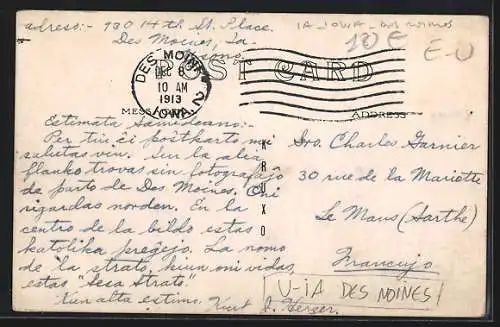 adreso:- 930 14th St. Place.
Des Moines, Ia.
IA IOWA - DES MOINES
10 E
E-U
DES MOINES
DEC 8
10 AM
1913
IOWA. 2
POST CARD
MESSAGE
ADDRESS
KRUXO
Estimata Samideano:-
Per tiu ĉi poŝtkarto mi
salutas vin. Sur la alia
flanko trovas sin fotografaĵo
de parto de Des Moines. Oni
rigardas norden. En la
centro de la bildo estas
katolika preĝejo. La nomo
de la strato, kiun oni vidas,
estas "Sesa Strato."
Kun alta estimo.
Kurt J.
Sro. Charles Garnier
30 rue de la Mariette
Le Mans (Sarthe)
Francujo
U-iA DES MOINES